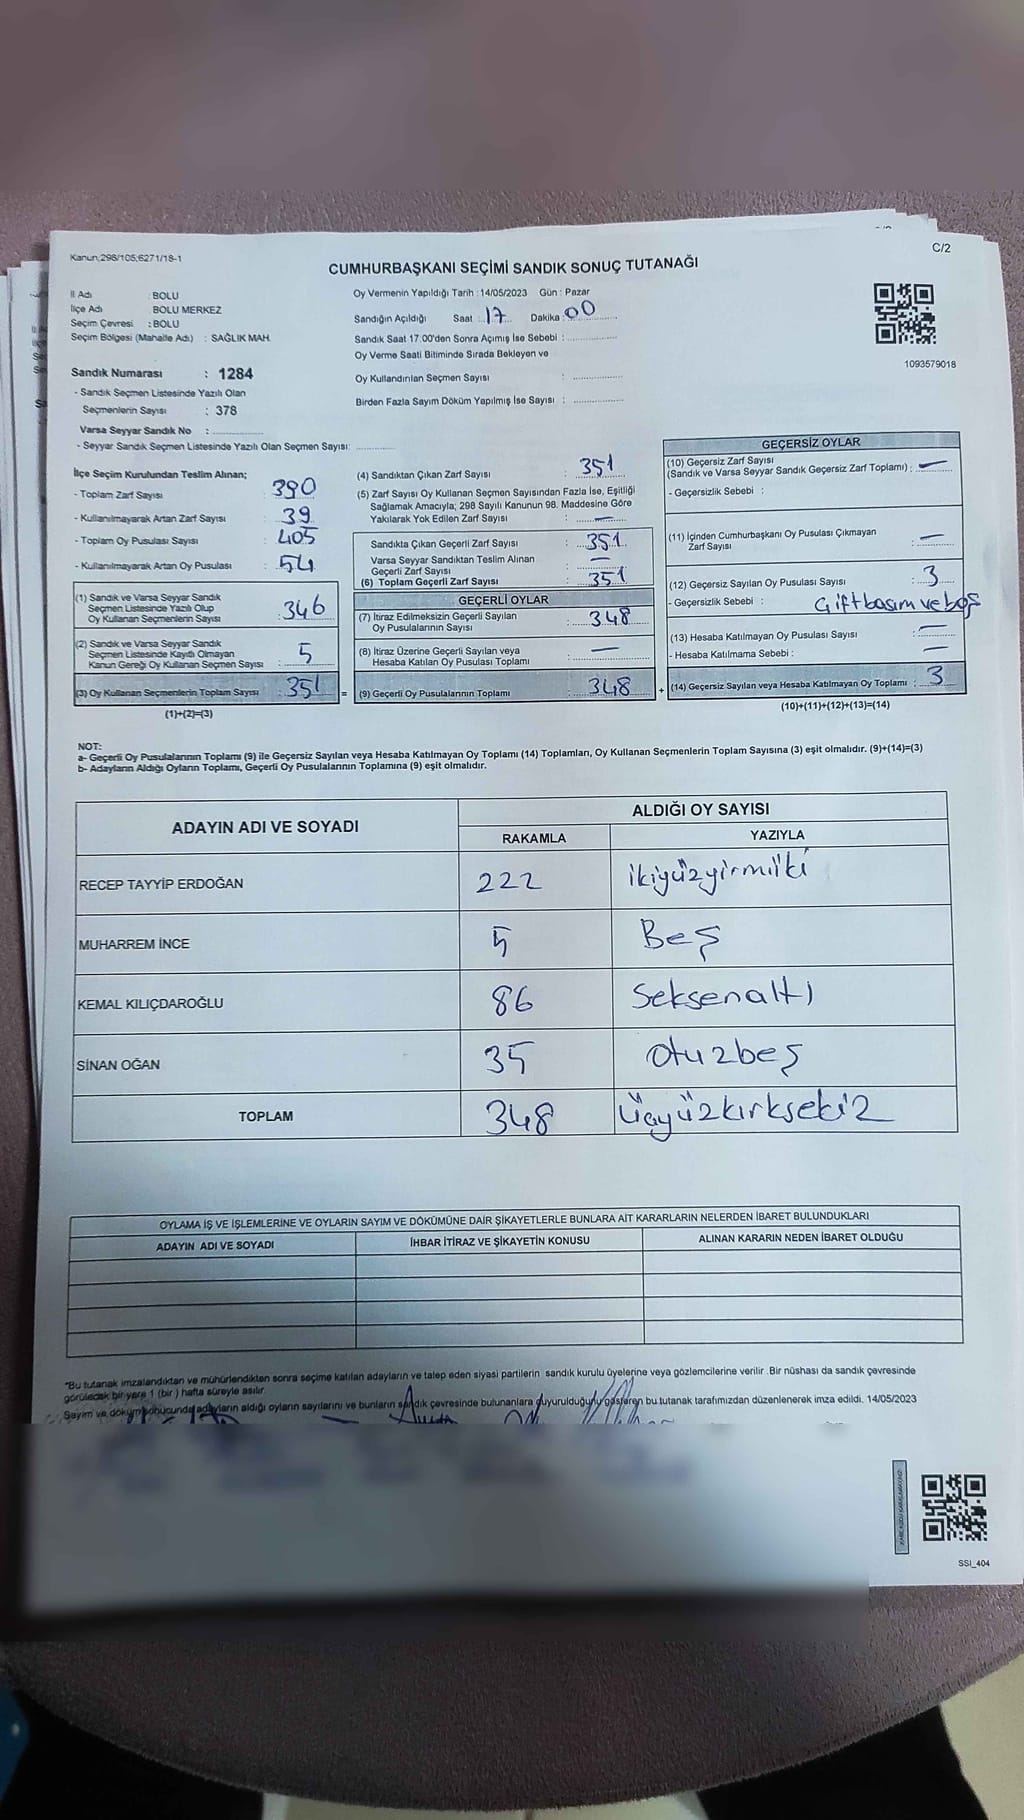 C/2
Kanun;298/105;6271/18-1
CUMHURBAŞKANI SEÇİMİ SANDIK SONUÇ TUTANAĞI
İl Adı : BOLU
İlçe Adı BOLU MERKEZ
Seçim Çevresi : BOLU
Seçim Bölgesi (Mahalle Adı) : SAĞLIK MAH.
Sandık Numarası : 1284
- Sandık Seçmen Listesinde Yazılı Olan
Seçmenlerin Sayısı : 378
Varsa Seyyar Sandık No :
- Seyyar Sandık Seçmen Listesinde Yazılı Olan Seçmen Sayısı:
Oy Vermenin Yapıldığı Tarih : 14/05/2023 Gün : Pazar
Sandığın Açıldığı Saat : 17 Dakika : 00
Sandık Saat 17.00'den Sonra Açımış İse Sebebi :
Oy Verme Saati Bitiminde Sırada Bekleyen ve
Oy Kullandırılan Seçmen Sayısı :
Birden Fazla Sayım Döküm Yapılmış İse Sayısı :
1093579018
İlçe Seçim Kurulundan Teslim Alınan;
- Toplam Zarf Sayısı : 390
- Kullanılmayarak Artan Zarf Sayısı : 39
- Toplam Oy Pusulası Sayısı : 405
- Kullanılmayarak Artan Oy Pusulası : 54
(1) Sandık ve Varsa Seyyar Sandık
Seçmen Listesinde Yazılı Olup
Oy Kullanan Seçmenlerin Sayısı : 346
(2) Sandık ve Varsa Seyyar Sandık
Seçmen Listesinde Kayıtlı Olmayan
Kanun Gereği Oy Kullanan Seçmen Sayısı : 5
(3) Oy Kullanan Seçmenlerin Toplam Sayısı : 351 =
(1)+(2)=(3)
(4) Sandıktan Çıkan Zarf Sayısı : 351
(5) Zarf Sayısı Oy Kullanan Seçmen Sayısından Fazla İse, Eşitliği
Sağlamak Amacıyla; 298 Sayılı Kanunun 98. Maddesine Göre
Yakılarak Yok Edilen Zarf Sayısı : —
Sandıkta Çıkan Geçerli Zarf Sayısı : 351
Varsa Seyyar Sandıktan Teslim Alınan
Geçerli Zarf Sayısı : —
(6) Toplam Geçerli Zarf Sayısı : 351
GEÇERLİ OYLAR
(7) İtiraz Edilmeksizin Geçerli Sayılan
Oy Pusulalarının Sayısı : 348
(8) İtiraz Üzerine Geçerli Sayılan veya
Hesaba Katılan Oy Pusulası Toplamı : —
(9) Geçerli Oy Pusulalarının Toplamı : 348 +
GEÇERSİZ OYLAR
(10) Geçersiz Zarf Sayısı
(Sandık ve Varsa Seyyar Sandık Geçersiz Zarf Toplamı) : —
- Geçersizlik Sebebi :
(11) İçinden Cumhurbaşkanı Oy Pusulası Çıkmayan
Zarf Sayısı : —
(12) Geçersiz Sayılan Oy Pusulası Sayısı : 3
- Geçersizlik Sebebi : Çift basım ve boş
(13) Hesaba Katılmayan Oy Pusulası Sayısı : —
- Hesaba Katılmama Sebebi : —
(14) Geçersiz Sayılan veya Hesaba Katılmayan Oy Toplamı : 3
(10)+(11)+(12)+(13)=(14)
NOT:
a- Geçerli Oy Pusulalarının Toplamı (9) ile Geçersiz Sayılan veya Hesaba Katılmayan Oy Toplamı (14) Toplamları, Oy Kullanan Seçmenlerin Toplam Sayısına (3) eşit olmalıdır. (9)+(14)=(3)
b- Adayların Aldığı Oyların Toplamı, Geçerli Oy Pusulalarının Toplamına (9) eşit olmalıdır.
ADAYIN ADI VE SOYADI ALDIĞI OY SAYISI
RAKAMLA YAZIYLA
RECEP TAYYİP ERDOĞAN 222 ikiyüzyirmiiki
MUHARREM İNCE 5 Beş
KEMAL KILIÇDAROĞLU 86 Seksenaltı
SİNAN OĞAN 35 otuzbeş
TOPLAM 348 üçyüzkırksekiz
OYLAMA İŞ VE İŞLEMLERİNE VE OYLARIN SAYIM VE DÖKÜMÜNE DAİR ŞİKAYETLERLE BUNLARA AİT KARARLARIN NELERDEN İBARET BULUNDUKLARI
ADAYIN ADI VE SOYADI İHBAR İTİRAZ VE ŞİKAYETİN KONUSU ALINAN KARARIN NEDEN İBARET OLDUĞU
*Bu tutanak imzalandıktan ve mühürlendikten sonra seçime katılan adayların ve talep eden siyasi partilerin sandık kurulu üyelerine veya gözlemcilerine verilir. Bir nüshası da sandık çevresinde
görülecek bir yere 1 (bir ) hafta süreyle asılır.
Sayım ve döküm sonucunda adayların aldığı oyların sayılarını ve bunların sandık çevresinde bulunanlara duyurulduğunu gösteren bu tutanak tarafımızdan düzenlenerek imza edildi. 14/05/2023
SSI_404